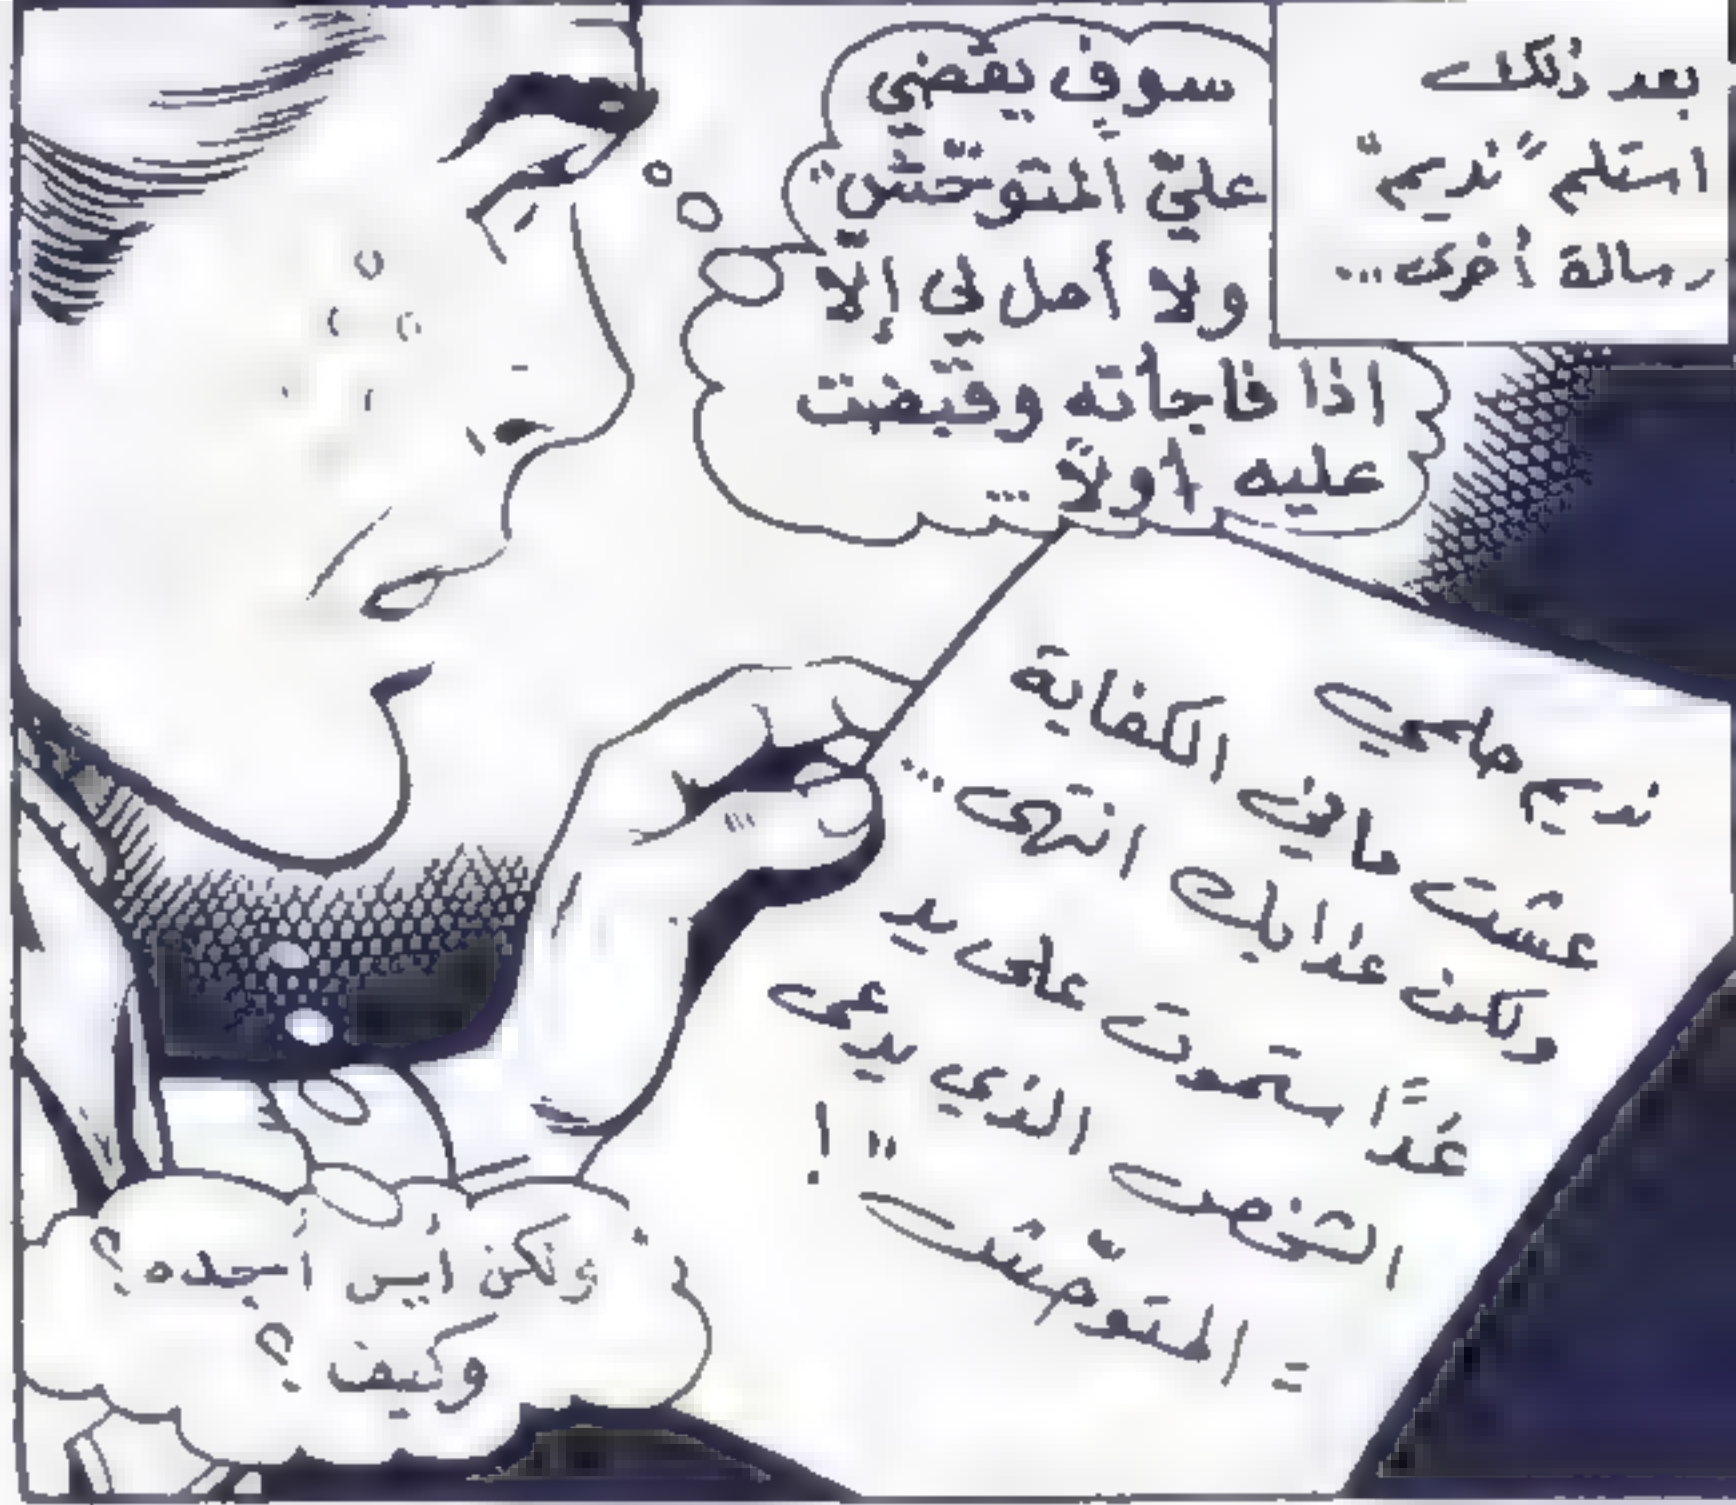 بعد ذلك
استلم "نديم"
رسالة أخرى...
سوف يقضي
عليّ المتوحّش"
ولا أمل لي إلّا
اذا فاجأته وقبضت
عليه أولاً ...
نديم حلمي
عشت مافي الكفاية
ولكن عذابك انتهى...
غدًا ستموت على يد
الشخص الذي يدعى
"المتوحّش" !
ولكن أين أجده؟
وكيف؟